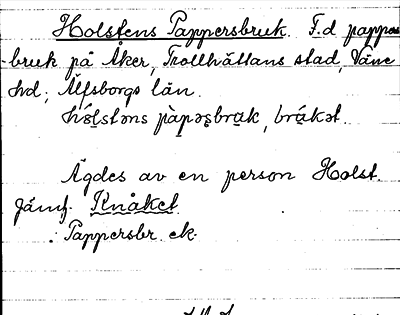 Holstens Pappersbruk. F.d pappers
bruk på Åker, Trollhättans stad, Väne
hd, Älfsborgs län.
hólstəns pàpəʂbruk, brúkət.
Ägdes av en person Holst.
Jämf. Knåket
: Pappersbr. ek.